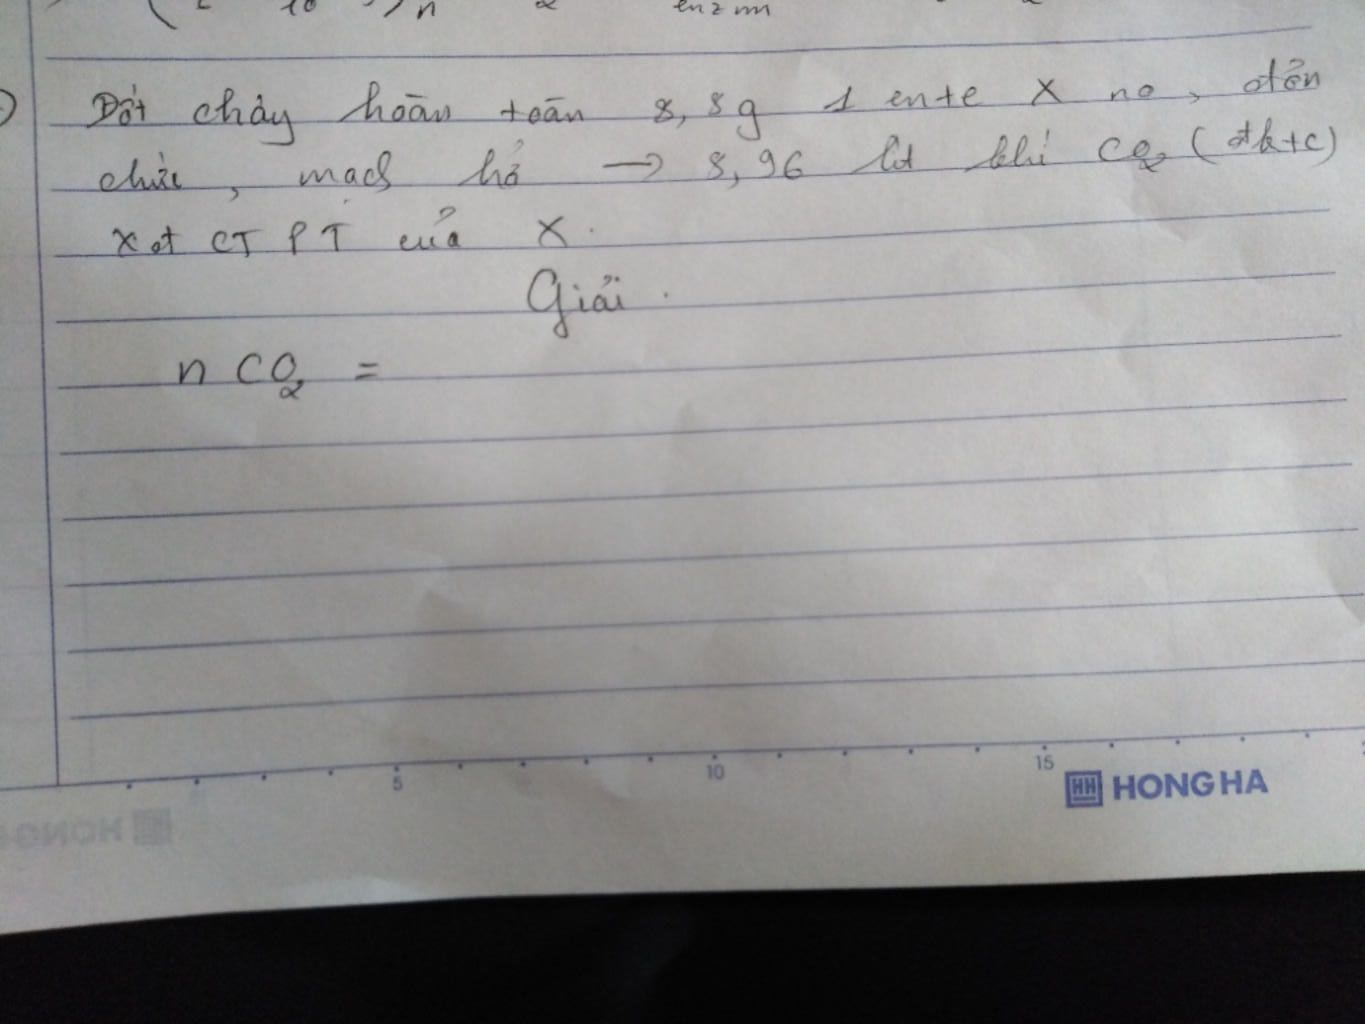 Đốt cháy hoàn toàn 8,8g 1 este X no, đơn
chức, mạch hở → 8,96 lít khí CO2 (đk+c)
Xđ CTPT của X.
Giải.
n CO2 =
5 10 15
HONG HA